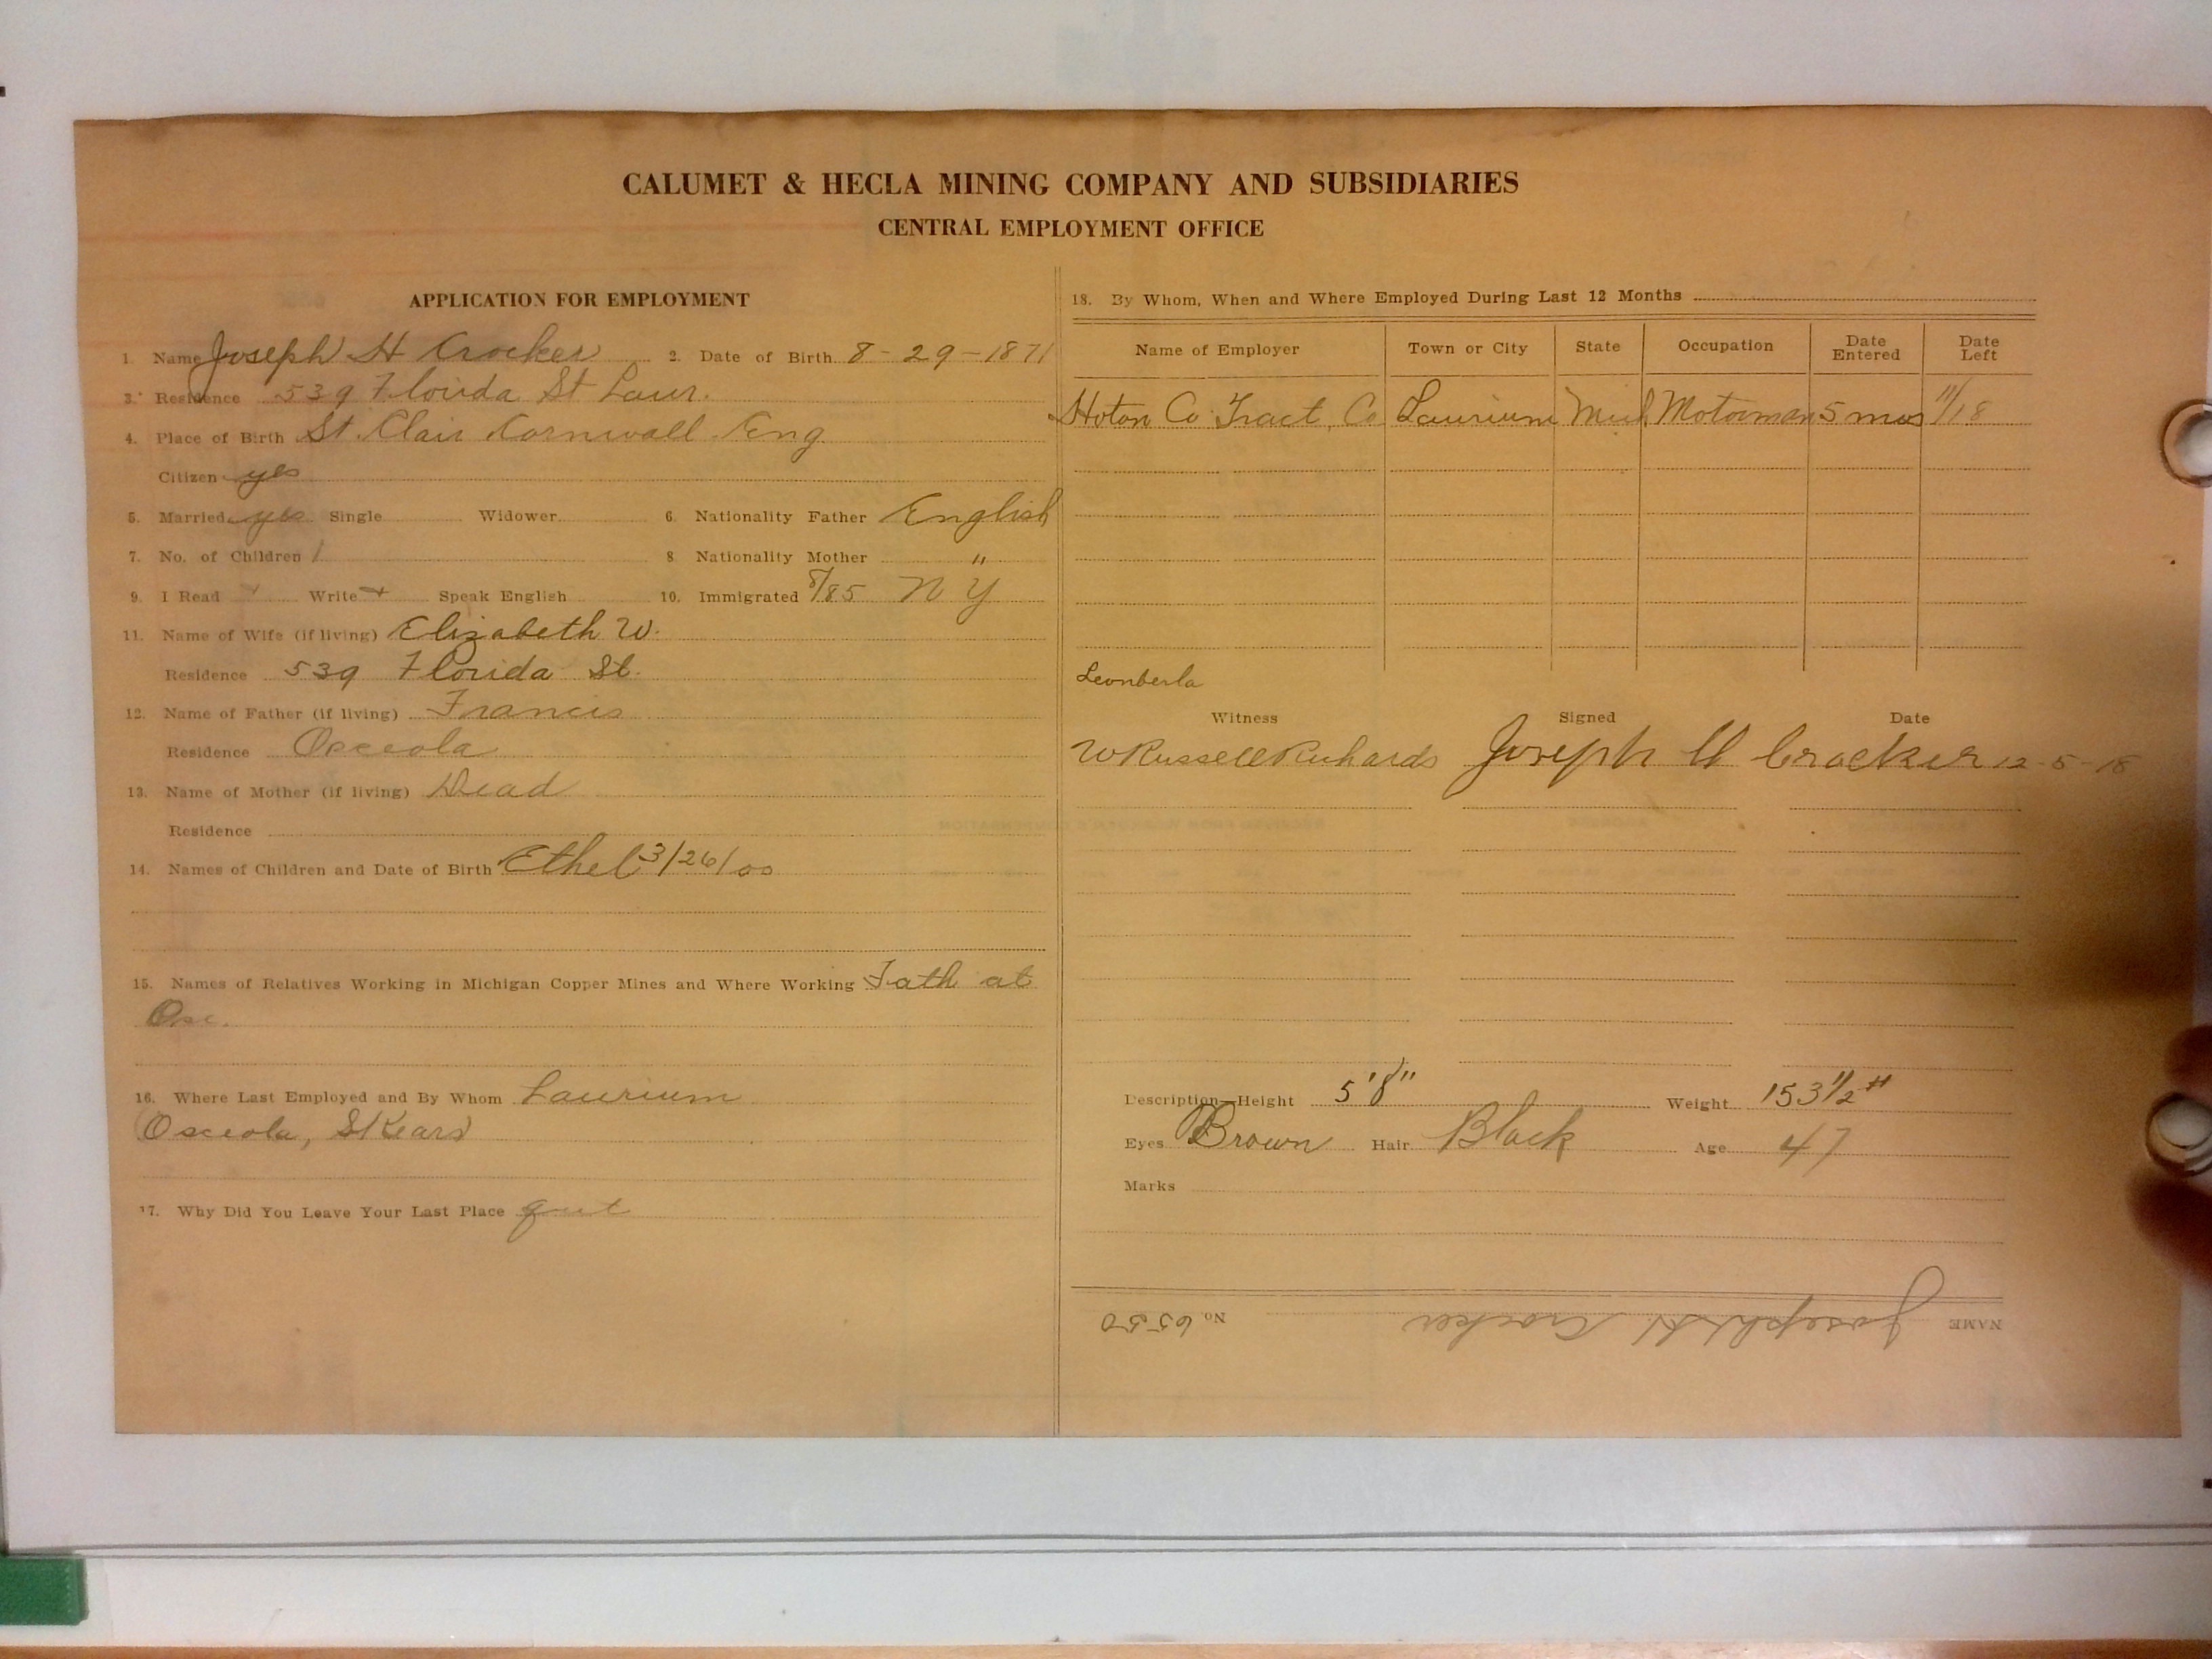 CALUMET & HECLA MINING COMPANY AND SUBSIDIARIES
CENTRAL EMPLOYMENT OFFICE
APPLICATION FOR EMPLOYMENT
1. Name Joseph H Crocker 2. Date of Birth 8-29-1871
3. Residence 539 Florida St Laur.
4. Place of Birth St. Clair Cornwall Eng
Citizen yes
5. Married yes Single Widower 6. Nationality Father English
7. No. of Children 1 8. Nationality Mother "
9. I Read Write Speak English 10. Immigrated 8/85 N Y
11. Name of Wife (if living) Elizabeth W.
Residence 539 Florida St.
12. Name of Father (if living) Francis
Residence Osceola
13. Name of Mother (if living) Dead
Residence
14. Names of Children and Date of Birth Ethel 3/26/00
15. Names of Relatives Working in Michigan Copper Mines and Where Working Fath at
Osc.
16. Where Last Employed and By Whom Laurium
Osceola,
17. Why Did You Leave Your Last Place quit
18. By Whom, When and Where Employed During Last 12 Months
Name of Employer Town or City State Occupation Date Entered Date Left
Hoton Co Tract. Co. Laurium Mich Motorman 5 mos 11/18
Witness Signed Date
W Russell Richards Joseph H Crocker 12-5-18
Description—Height 5'8" Weight 153 1/2 #
Eyes Brown Hair Black Age 47
Marks
NAME Joseph H. Crocker No 6550